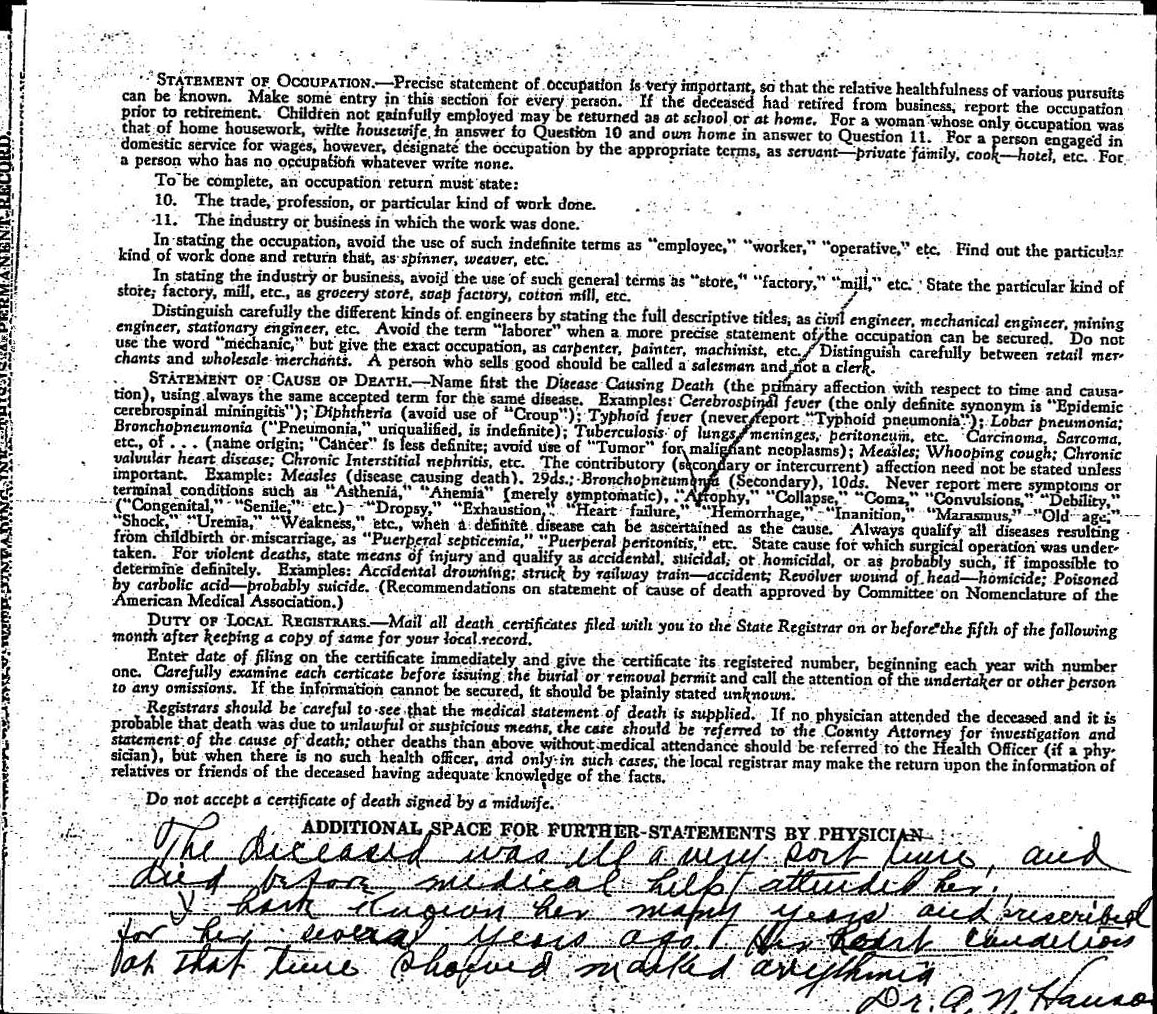 STATEMENT OF OCCUPATION.—Precise statement of occupation is very important, so that the relative healthfulness of various pursuits
can be known. Make some entry in this section for every person. If the deceased had retired from business, report the occupation
prior to retirement. Children not gainfully employed may be returned as at school or at home. For a woman whose only occupation was
that of home housework, write housewife in answer to Question 10 and own home in answer to Question 11. For a person engaged in
domestic service for wages, however, designate the occupation by the appropriate terms, as servant—private family, cook—hotel, etc. For
a person who has no occupation whatever write none.
To be complete, an occupation return must state:
10. The trade, profession, or particular kind of work done.
11. The industry or business in which the work was done.
In stating the occupation, avoid the use of such indefinite terms as "employee," "worker," "operative," etc. Find out the particular
kind of work done and return that, as spinner, weaver, etc.
In stating the industry or business, avoid the use of such general terms as "store," "factory," "mill," etc. State the particular kind of
store, factory, mill, etc., as grocery store, soap factory, cotton mill, etc.
Distinguish carefully the different kinds of engineers by stating the full descriptive titles, as civil engineer, mechanical engineer, mining
engineer, stationary engineer, etc. Avoid the term "laborer" when a more precise statement of the occupation can be secured. Do not
use the word "mechanic," but give the exact occupation, as carpenter, painter, machinist, etc. Distinguish carefully between retail mer-
chants and wholesale merchants. A person who sells good should be called a salesman and not a clerk.
STATEMENT OF CAUSE OF DEATH.—Name first the Disease Causing Death (the primary affection with respect to time and causa-
tion), using always the same accepted term for the same disease. Examples: Cerebrospinal fever (the only definite synonym is "Epidemic
cerebrospinal miningitis"); Diphtheria (avoid use of "Croup"); Typhoid fever (never report "Typhoid pneumonia"); Lobar pneumonia;
Bronchopneumonia ("Pneumonia," unqualified, is indefinite); Tuberculosis of lungs, meninges, peritoneum, etc. Carcinoma, Sarcoma,
etc., of . . . (name origin; "Cancer" is less definite; avoid use of "Tumor" for malignant neoplasms); Measles; Whooping cough; Chronic
valvular heart disease; Chronic Interstitial nephritis, etc. The contributory (secondary or intercurrent) affection need not be stated unless
important. Example: Measles (disease causing death), 29ds.; Bronchopneumonia (Secondary), 10ds. Never report mere symptoms or
terminal conditions such as "Asthenia," "Anemia" (merely symptomatic), "Atrophy," "Collapse," "Coma," "Convulsions," "Debility,"
("Congenital," "Senile," etc.) "Dropsy," "Exhaustion," "Heart failure," "Hemorrhage," "Inanition," "Marasmus," "Old age,"
"Shock," "Uremia," "Weakness," etc., when a definite disease can be ascertained as the cause. Always qualify all diseases resulting
from childbirth or miscarriage, as "Puerperal septicemia," "Puerperal peritonitis," etc. State cause for which surgical operation was under-
taken. For violent deaths, state means of injury and qualify as accidental, suicidal, or homicidal, or as probably such, if impossible to
determine definitely. Examples: Accidental drowning; struck by railway train—accident; Revolver wound of head—homicide; Poisoned
by carbolic acid—probably suicide. (Recommendations on statement of cause of death approved by Committee on Nomenclature of the
American Medical Association.)
DUTY OF LOCAL REGISTRARS.—Mail all death certificates filed with you to the State Registrar on or before the fifth of the following
month after keeping a copy of same for your local record.
Enter date of filing on the certificate immediately and give the certificate its registered number, beginning each year with number
one. Carefully examine each certicate before issuing the burial or removal permit and call the attention of the undertaker or other person
to any omissions. If the information cannot be secured, it should be plainly stated unknown.
Registrars should be careful to see that the medical statement of death is supplied. If no physician attended the deceased and it is
probable that death was due to unlawful or suspicious means, the case should be referred to the County Attorney for investigation and
statement of the cause of death; other deaths than above without medical attendance should be referred to the Health Officer (if a phy-
sician), but when there is no such health officer, and only in such cases, the local registrar may make the return upon the information of
relatives or friends of the deceased having adequate knowledge of the facts.
Do not accept a certificate of death signed by a midwife.
ADDITIONAL SPACE FOR FURTHER STATEMENTS BY PHYSICIAN
The deceased was ill a very sort time, and
died before medical help attended her.
I have known her many years and prescribed
for her several years ago. Her heart condition
at that time showed marked arythmia
Dr. A. N. Hanso
PERMANENT RECORD.